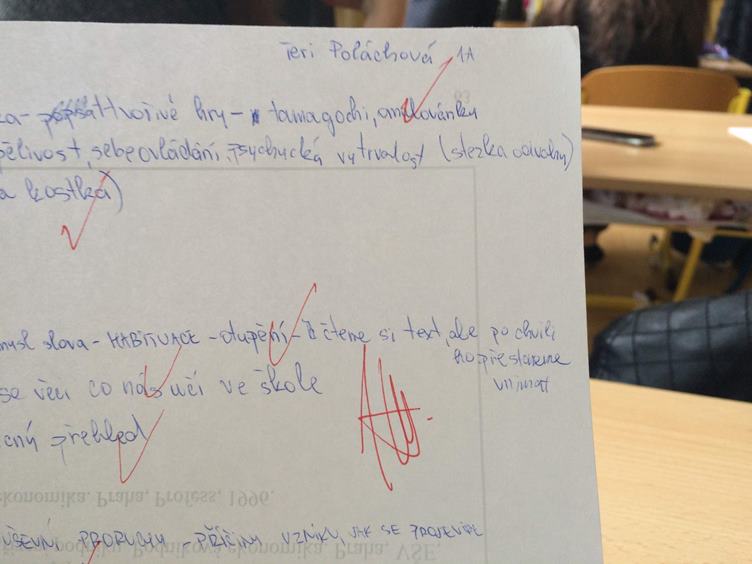 Teri Poláchová 1A
ka- tvořivé hry - tamagochi, omalovánky
pělivost, sebeovládání, psychycká vytrvalost (stezka odvahy)
a kostka)
mysl slova - HABITUACE - otupění - čteme si text, ale po chvíli
ho přestaneme
vnímat
se věci co nás učí ve škole
cný přehled
ekonomika. Praha, Profess, 1996.
UŠEVNÍ PORUCHY - PŘÍČINY VZNIKU, JAK SE PROJEVUJE
Podniková ekonomika, Praha, VŠE.